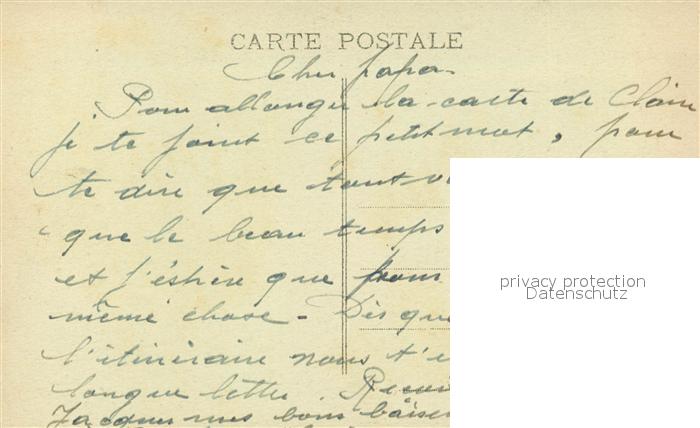 CARTE POSTALE
Cher papa
Pour allonger la carte de Claire
je te joint ce petit mot, pour
te dire que tout v
que le beau temps
et j'éspère que pour
même chose - Dès que
l'itinéraire nous t'e
longue lettre. 
Jacques mes bons baiser
privacy protection
Datenschutz